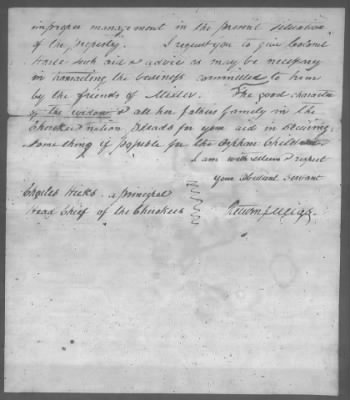 improper management in the present situation
of the property. I request you to give Colonel
such aid & advice as may be necessary
in transacting the business committed to him
by the friends of Miller. The good character
of the widow & all her fathers family in the
Cherokee nation pleads for your aid in obtaining
some thing if possible for the orphan Children.
I am with esteem & respect
your obedient Servant
Return J Meigs
Charles Hicks a principal
head Chief of the Cherokees